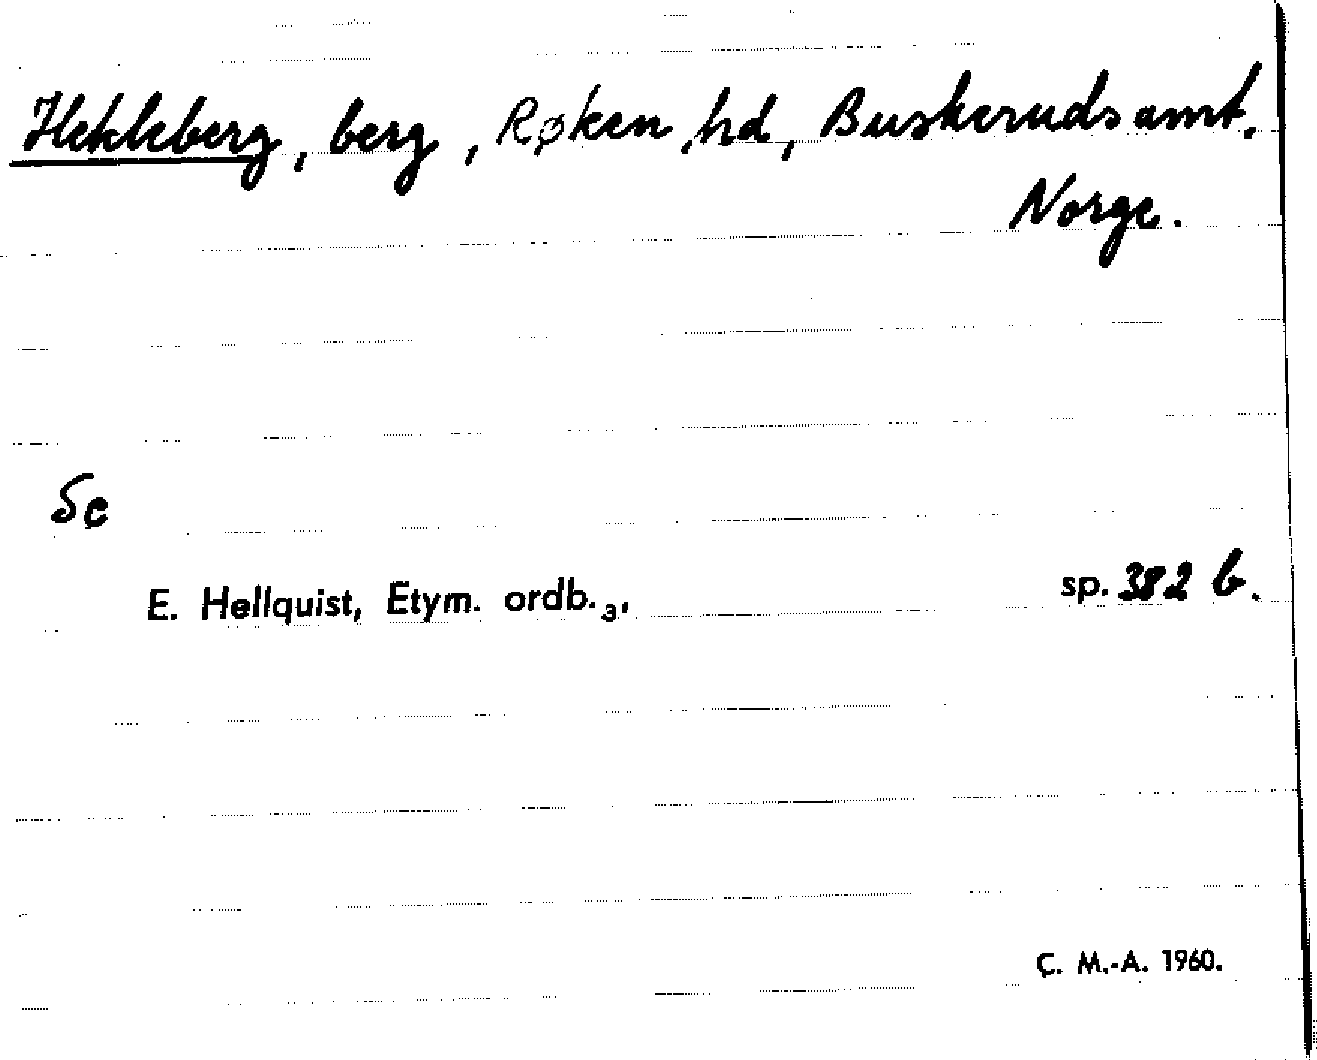 Hekleberg, berg, Røken hd, Buskeruds amt.
Norge.
Se
E. Hellquist, Etym. ordb.₃, sp. 382 b.
C. M.-A. 1960.